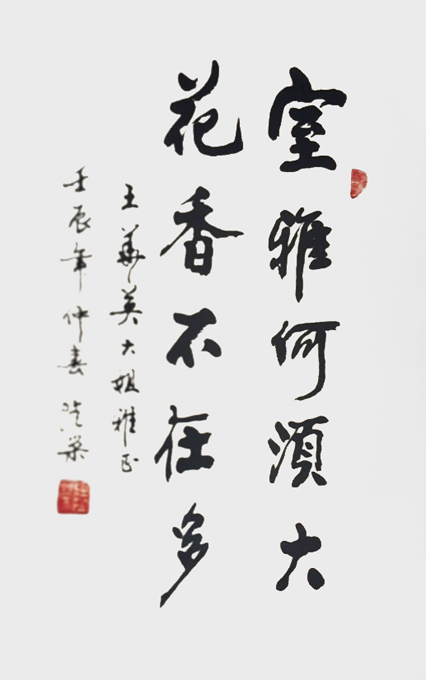 室雅何须大
花香不在多
王华英大姐雅正
壬辰年仲春